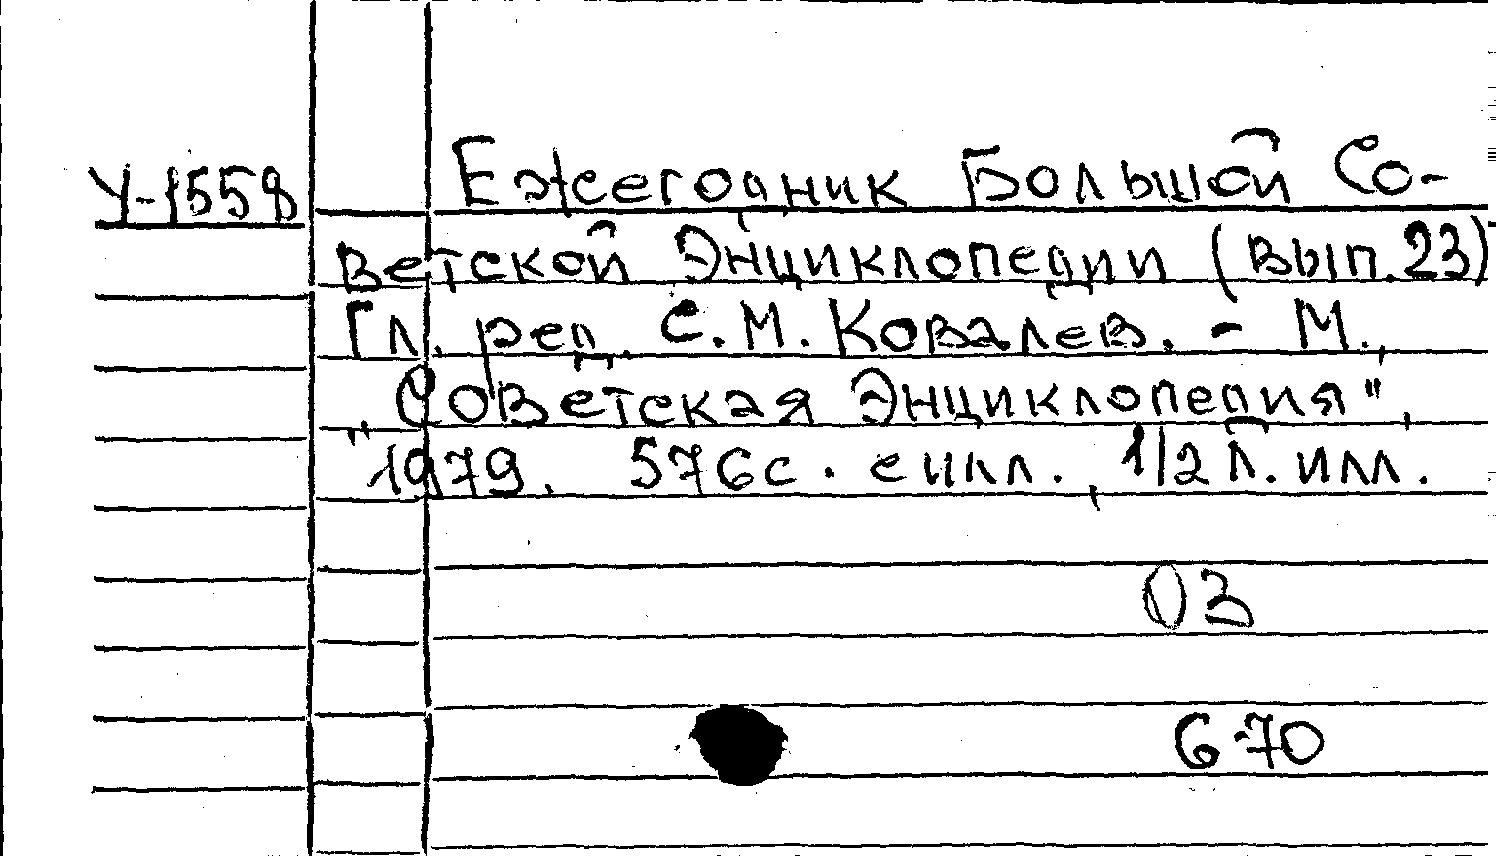 У-1558 Ежегодник Большой Со-
ветской Энциклопедии (вып.23)
Гл. ред. С.М. Ковалев. - М.,
„Советская Энциклопедия",
1979. 576с. с илл., 1/2 л. илл.
03
6-70